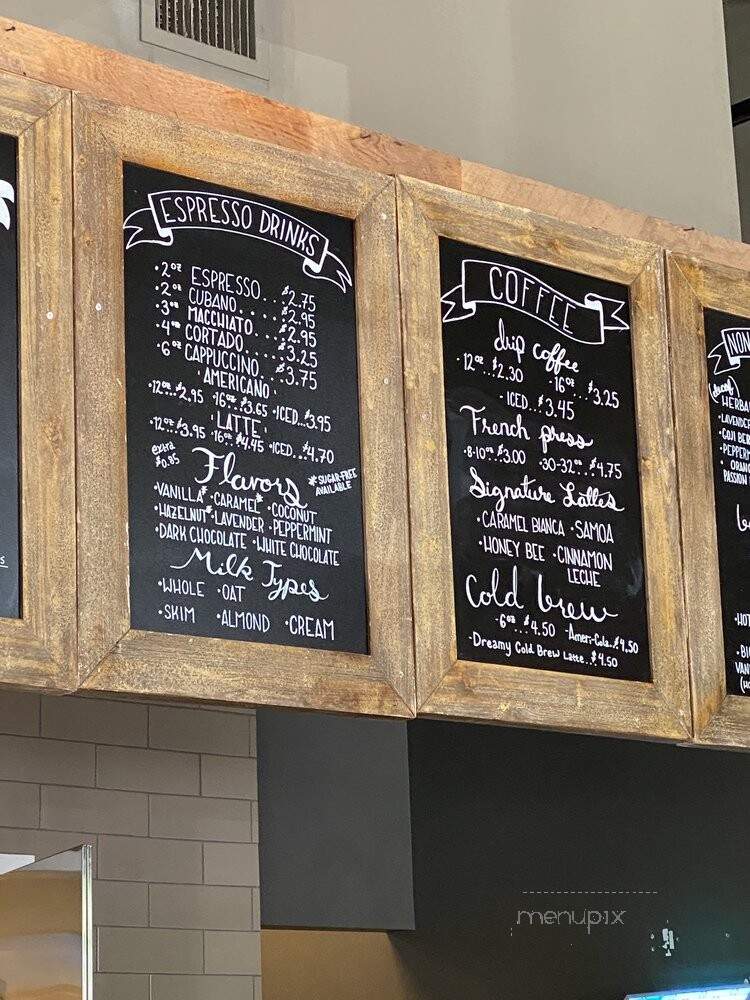 ESPRESSO DRINKS
•2oz ESPRESSO...$2.75
•2oz CUBANO.....$2.95
•3oz MACCHIATO..$2.95
•4oz CORTADO....$3.25
•6oz CAPPUCCINO..$3.75
'AMERICANO'
•12oz..$2.95 •16oz..$3.65 •ICED...$3.95
'LATTE'
•12oz..$3.95 •16oz..$4.45 •ICED...$4.70
extra $0.85
Flavors
*SUGAR-FREE AVAILABLE
•VANILLA* •CARAMEL* •COCONUT
•HAZELNUT* •LAVENDER •PEPPERMINT
•DARK CHOCOLATE •WHITE CHOCOLATE
Milk Types
•WHOLE •OAT
•SKIM •ALMOND •CREAM
COFFEE
drip coffee
•12oz..$2.30 •16oz..$3.25
•ICED...$3.45
French press
•8-10oz..$3.00 •30-32oz..$4.75
Signature Lattes
•CARAMEL BIANCA •SAMOA
•HONEY BEE •CINNAMON LECHE
Cold brew
•6oz...$4.50 •Ameri-Cola..$4.50
•Dreamy Cold Brew Latte..$4.50
NON
(decaf)
HERBA
•LAVENDER
•GOJI BER
•PEPPERM
•ORANG
PASSION
•HOT
•BI
VAN
menupix